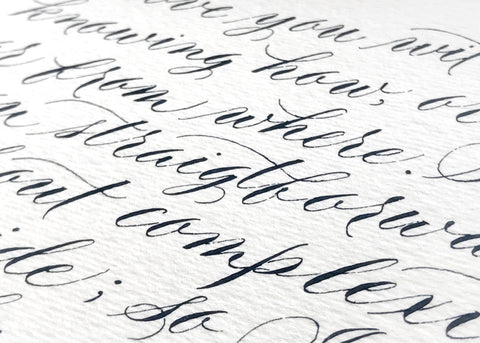 ove you wit
knowing how, o
r from where.
straigtforwa
out complexi
ide; so